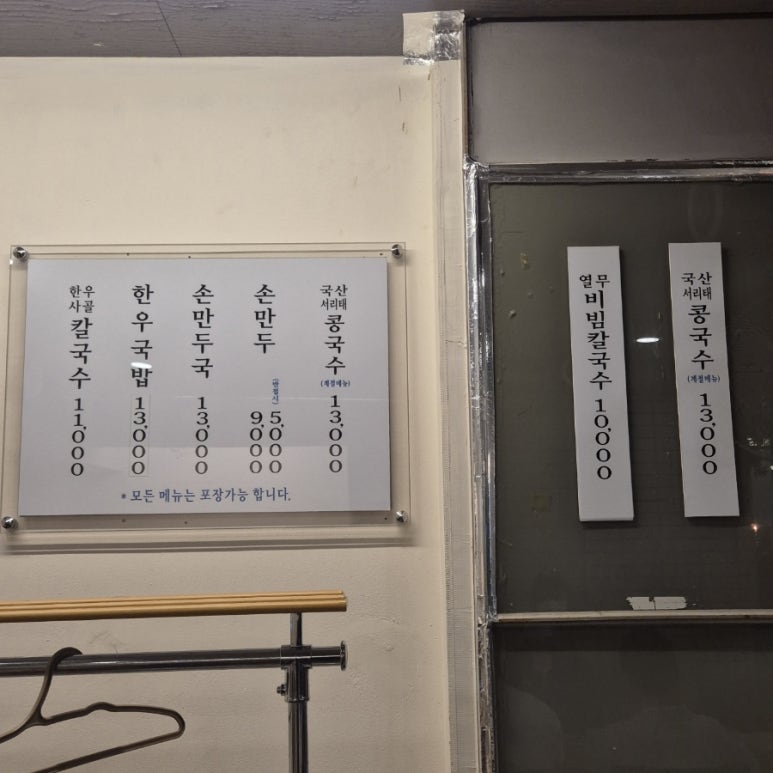 한우
사골 칼국수 11,000
한우국밥 13,000
손만두국 13,000
손만두 (반접시) 5,000
9,000
국산
서리태 콩국수 (계절메뉴) 13,000
* 모든 메뉴는 포장가능 합니다.
열무
비빔칼국수 10,000
국산
서리태 콩국수 (계절메뉴) 13,000